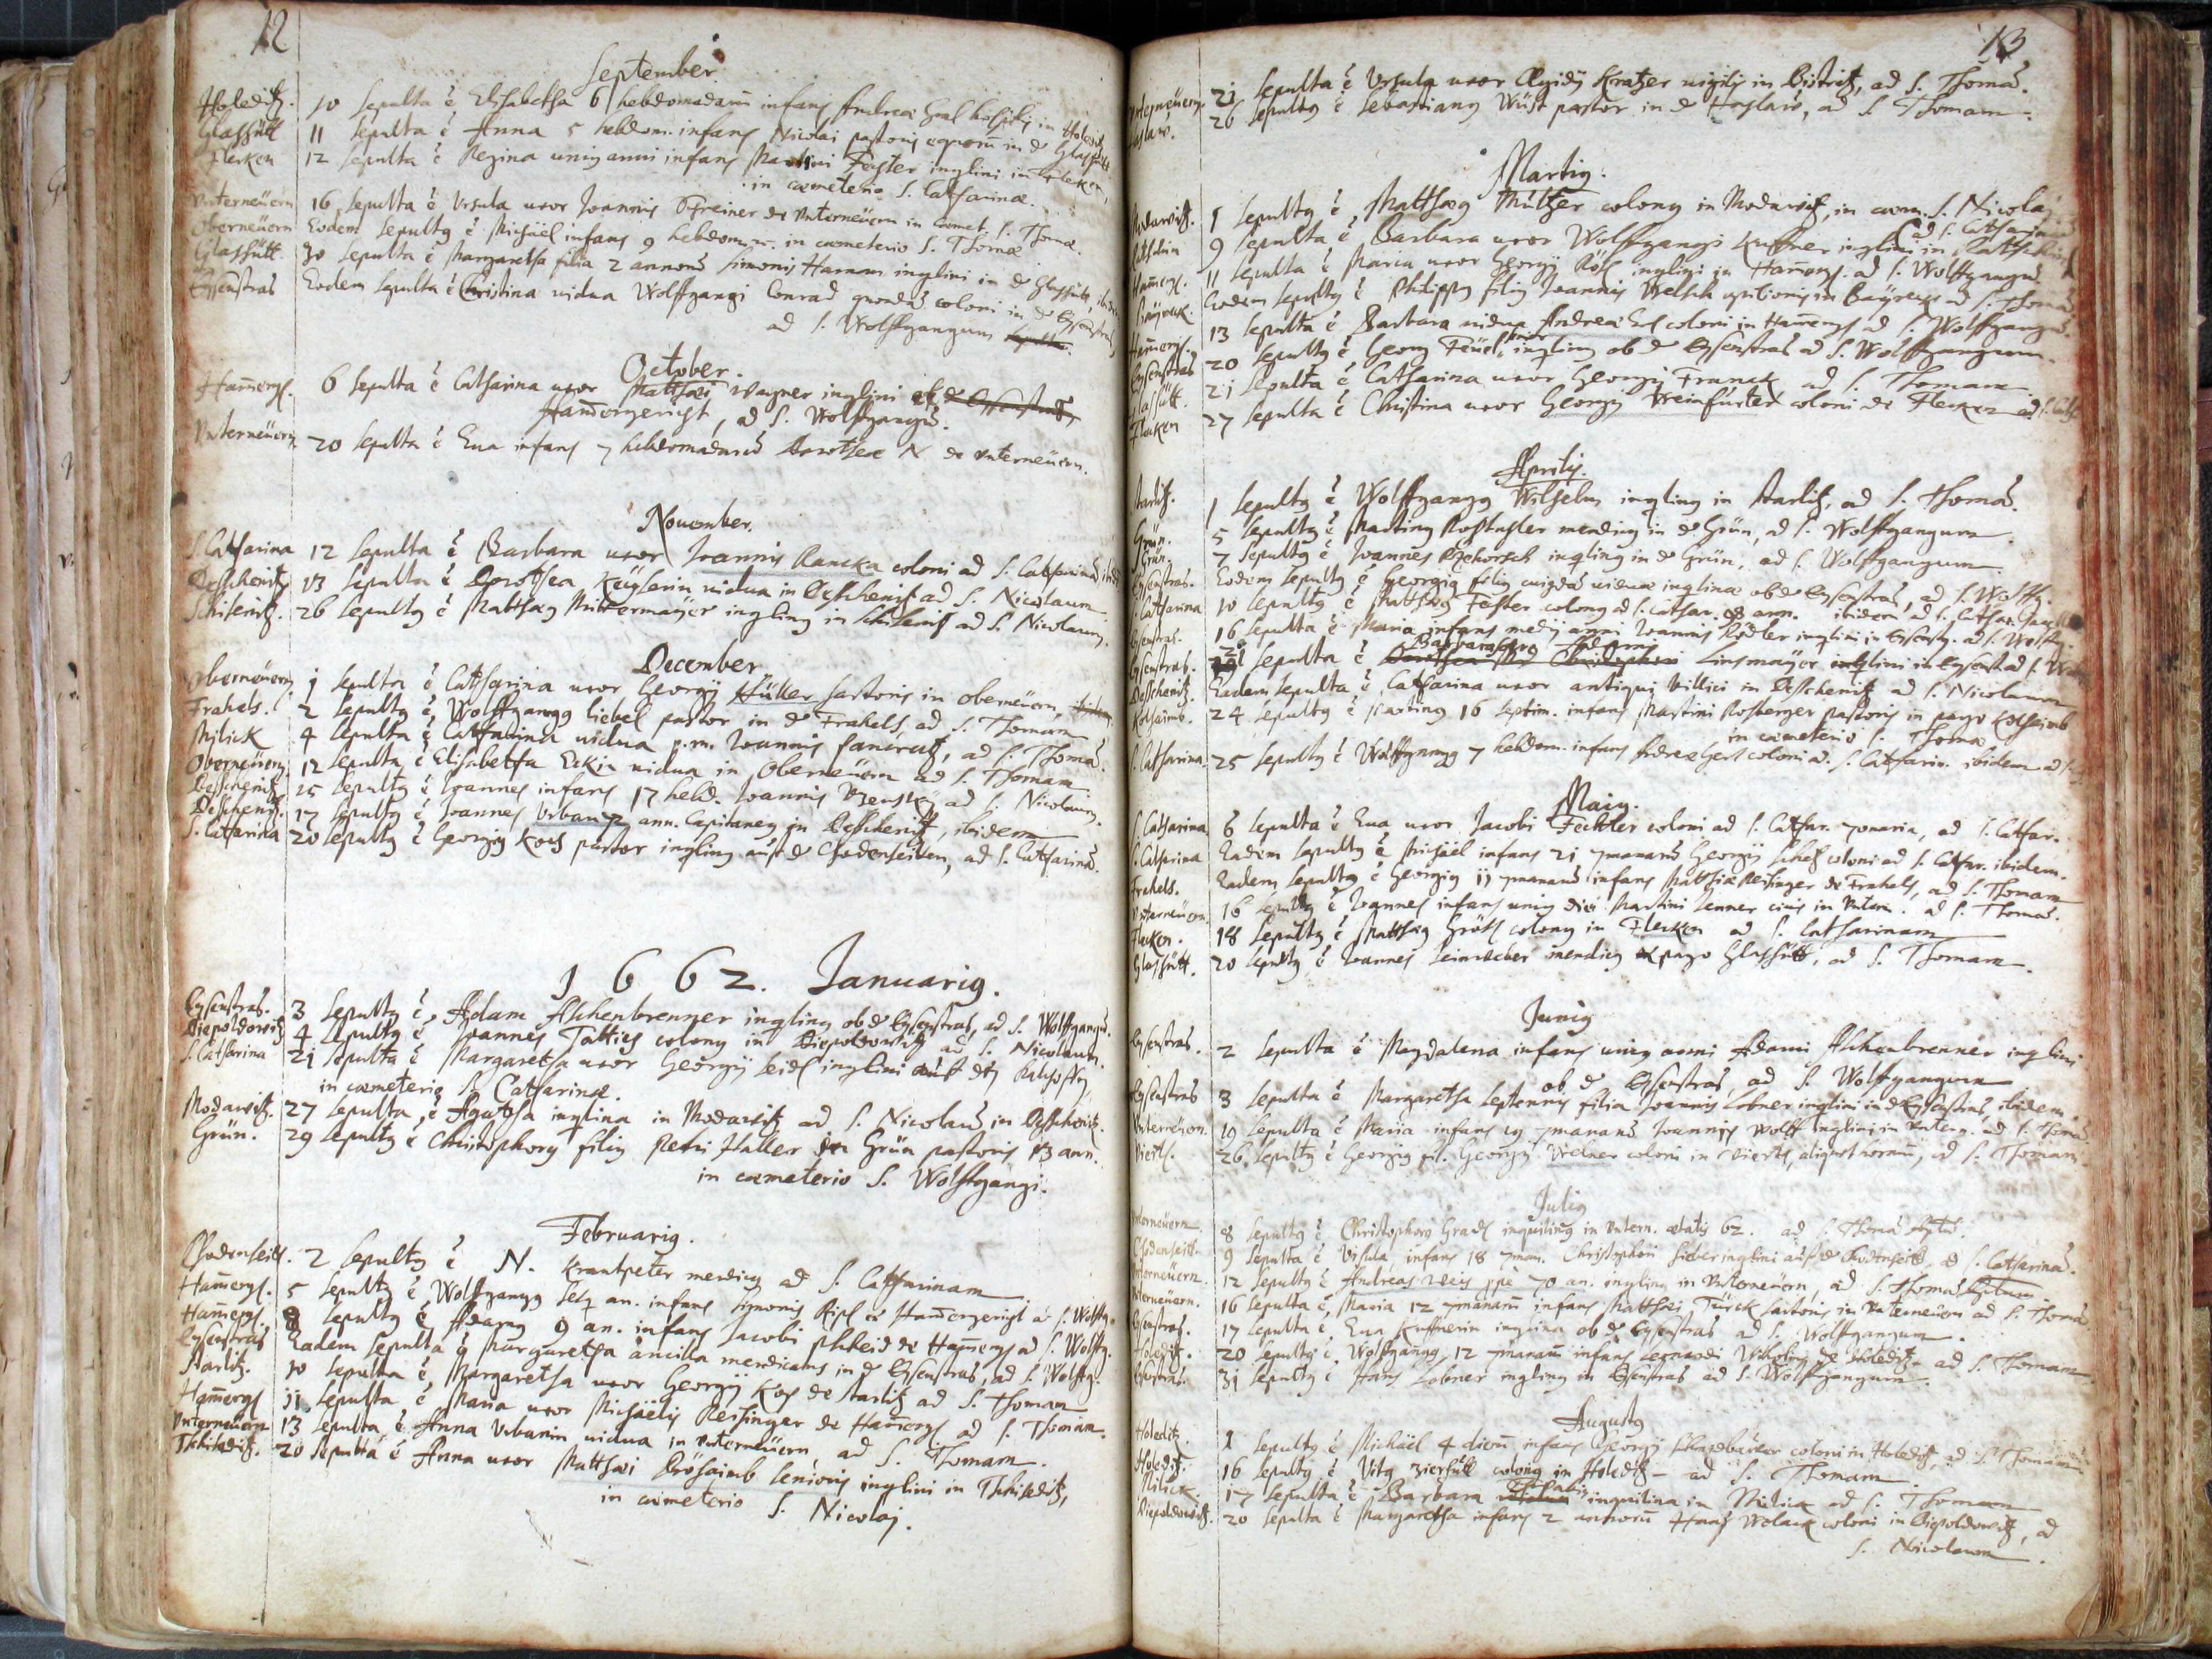 12
September
Holeditz. 10 Sepulta ē Elisabetha 6 hebdomadarū infans Andreæ in Holeditz
Glashütt 11 Sepulta ē Anna 5 hebdom. infans Nicolai pastoris equorū in d Glashütt
Flecken 12 Sepulta ē Regina unius anni infans Martini Fester inqlini in Flecken,
in cœmeterio S. Catharinæ.
Vnterneüern 16 Sepulta ē Vrsula uxor Joannis de Vnterneüern in cœmet. S. Thomæ.
Oberneüern Eodem Sepultg ē Michäel infans 9 hebdom. in cœmeterio S. Thomæ
Glashütt. 30 Sepulta ē Margaretha filia 2 annorū Simonis Hamam inqlini in d Glashütt,
Eysenstras Eodem sepulta ē Cristina uidua Wolffgangi Conrad quondā coloni in d Eysenstras,
ad S. Wolffgangum
October.
Ham̄ergs. 6 Sepulta ē Catharina uxor Matthæi Wagner inqlini
Ham̄ergericht, ad S. Wolffgangū.
Vnterneüern 20 Sepulta ē Eua infans 7 hebdomadarū Dorotheæ N de Vnterneüern.
Nouember.
S. Catharina 12 Sepulta ē Barbara uxor Joannis Rancka coloni ad S. Catharinā
Deschenitz 13 Sepulta ē Dorothea Keÿserin uidua in Deschenitz ad S. Nicolaum
26 Sepultg ē Matthæg Mittermaÿer inqling in ad S. Nicolaum.
December
Oberneüern 1 Sepulta ē Catharina uxor Georgÿ Hüller sartoris in Oberneüern,
Frahels. 2 Sepultg ē Wolffgangg liebel pastor in d Frahels, ad S. Thomam
Milick 4 Sepulta ē Catharina uidua p.m. Joannis Pancratz, ad S. Thomā.
Oberneüern 12 Sepulta ē Elisabetha Eckin uidua in Oberneüern ad S. Thomam
Deschenitz 15 Sepultg ē Joannes infans 17 hebd. Joannis ad S. Nicolaum.
Deschenitz 17 Sepultg ē Joannes Vrban ann. Capitaneg in Deschenitz, ibidem
S. Catharina 20 Sepultg ē Georgig Koch pastor inqling auf d Chodenseiten, ad S. Catharinā.
1662. Januarig.
Eysenstras. 3 Sepultg ē Adam Aschenbrenner inqling ob d Eysenstras, ad S. Wolffgangū.
Diepoldowitz 4 Sepultg ē Joannes Tattieg colong in Diepoldowitz ad S. Nicolaum.
S. Catharina 21 Sepulta ē Margaretha uxor Georgÿ Seidl inqlini auf
in cœmeterio S. Catharinæ.
Modawitz. 27 Sepulta ē Agatha inqlina in Modawitz ad S. Nicolaū in Deschenitz.
Grün. 29 Sepultg ē Christophorg filig Petri Haller Grün pastoris 13 ann.
in cœmeterio S. Wolffgangi.
Februarig.
Chodenseitt. 2 Sepultg ē N. Krantpeter mendicg ad S. Catharinam
Ham̄ergs. 5 Sepultg ē Wolffgangg an. infans Simonis Ripl Ham̄ergericht ad S. Wolffg.
Ham̄ergs. 8 Sepultg ē Adamg 9 an. infans Jacobi de Ham̄ergs ad S. Wolffg.
Eysenstras Eadem Sepulta ē Margaretha ancilla mendicans in d Eysenstras, ad S. Wolffg.
Starlitz. 10 Sepulta ē Margaretha uxor Georgÿ Kop de Starlitz ad S. Thomam
Ham̄ergs 11 Sepulta ē Maria uxor Michäelis Reisinger de Ham̄ergs ad S. Thomam.
Vnterneüern 13 Sepulta ē Anna Vrbanin uidua in Vnterneüern ad S. Thomam.
20 Sepulta ē Anna uxor Matthæi Dröhaimb senioris inqlini in
in cœmeterio S. Nicolaj.
13
Vnterneüern 21 Sepulta ē Vrsula uxor Ægidÿ Kratzer uigilis in Bistritz, ad S. Thomā.
Haslaw. 26 Sepultg ē Sebastiang Wüst pastor in d Haslaw, ad S. Thomam.
Martig.
Modawitz. 1 Sepultg ē Matthæg Mültzer colong in Modawitz, in cœm. S. Nicolaj.
9 Sepulta ē Barbara uxor Wolffgangi Kuffner inqlini in ad S. Catharinā
Ham̄ergs. 11 Sepulta ē Maria uxor Georgÿ inqlini in Ham̄ergs. ad S. Wolffgangū
Baÿreck. Eodem Sepultg ē Philippg filig Joannis Welsch opilionis in Baÿreck ad S. Thomā
Ham̄ergs. 13 Sepulta ē Barbara uidua Andreæ coloni in Ham̄ergs ad S. Wolffgangū.
Eysenstras 20 Sepultg ē Georg Feüel inqling ob d Eysenstras ad S. Wolffgangum.
Glashütt. 21 Sepulta ē Catharina uxor Georgÿ Franck ad S. Thomam
Flecken 27 Sepulta ē Christina uxor Georgÿ Weinfurter coloni de Flecken ad S. Cath.
Aprilis.
Starlitz. 1 Sepultg ē Wolffgangg Wilhelm inqling in Starlitz, ad S. Thomā.
Grün. 5 Sepultg ē Marting mendicg in d Grün, ad S. Wolffgangum.
Grün. 7 Sepultg ē Joannes Rzehorsch inqling in d Grün, ad S. Wolffgangum
Eysenstras. Eodem Sepultg ē Georgig filig cuigdā uiduæ inqlinæ ob d Eysenstras, ad S. Wolffg.
S. Catharina 10 Sepultg ē Matthæg Fester colong ad S. Cathar. ann. ibidem ad S. Cathar.
Eysenstras. 16 Sepulta ē Maria infans medÿ anni Joannis Rödler inqlini in Eysenstr. ad S. Wolffg.
Eysenstras. Sepulta ē Barbara Linsmaÿer inqlini in Eysenst. ad S. Wolffg
Deschenitz. Eadem Sepulta ē Catharina uxor antiqui Villici in Deschenitz ad S. Nicolaum
Kolhaimb. 24 Sepultg ē Marting 16 septim. infans Martini Rosberger pastoris in pago Kolhaimb
in cœmeterio S. Thomæ
S. Catharina. 25 Sepultg ē Wolffgangg 7 hebdom. infans Andreæ coloni ad S. Catharin. ibidem
Maig.
S. Catharina 6 Sepulta ē Eua uxor Jacobi Feckter coloni ad S. Cathar. ad S. Cathar.
S. Catharina Eadem Sepultg ē Michäel infans 21 7manarū Georgÿ coloni ad S. Cathar. ibidem.
Frahels. Eadem Sepultg ē Georgig 11 7manarū infans Matthiæ Reisinger de Frahels, ad S. Thomam
Vnterneüern. 16 Sepultg ē Joannes infans unig diei Martini Lenner ciuis in Vntern. ad S. Thomā.
Flecken. 18 Sepultg ē Matthæg Gröll colong in Flecken ad S. Catharinam
Glashütt. 20 Sepultg ē Joannes Leinweber mendicg pago Glashütt, ad S. Thomam.
Junig
Eysenstras. 2 Sepulta ē Magdalena infans unig anni Adami Aschenbrenner inqlini
ob d Eysenstras ad S. Wolffgangum
Eysenstras 3 Sepulta ē Margaretha septennis filia Joannis Lobner inqlini in d Eysenstras ibidem.
Vnterneüern. 19 Sepulta ē Maria infans 19 7manarū Joannis Wolff inqlini in Vntern. ad S. Thomā.
Viertl. 26 Sepultg ē Georgig fil. Georgÿ Welner coloni in Viertl, aliquot horarū, ad S. Thomam.
Julig
Vnterneüern. 8 Sepultg ē Christophorg Gradl inquiling in Vntern. ætatis 62. ad S. Thomā
Chodenseitt. 9 Sepulta ē Vrsula infans 18 7man. Christophori Sieber inqlini auf d Chodenseitt, ad S. Catharinā.
Vnterneüern. 12 Sepultg ē Andreas Weis ppe 70 an. inqling in Vnterneüern, ad S. Thomā
Vnterneüern. 16 Sepulta ē Maria 12 7manarū infans Matthæi Türck sartoris in Vnterneüern ad S. Thomā.
Eysenstras. 17 Sepulta ē Eua Kuffnerin inqlina ob d Eysenstras ad S. Wolffgangum.
Holeditz. 20 Sepultg ē Wolffgangg 12 7manarū infans de Holeditz ad S. Thomam
Eysenstras. 31 Sepultg ē Hans Lobner inqling in Eysenstras ad S. Wolffgangum.
Augustg
Holeditz. 1 Sepultg ē Michäel 4 dierū infans Georgÿ coloni in Holeditz, ad S. Thomam
Holeditz. 16 Sepultg ē Vitg colong in Holeditz ad S. Thomam
Milick. 17 Sepulta ē Barbara inquilina in Milick ad S. Thomam
Diepoldowitz. 20 Sepulta ē Margaretha infans 2 annorū Hans Welack coloni in Diepoldowitz, ad
S. Nicolaum.